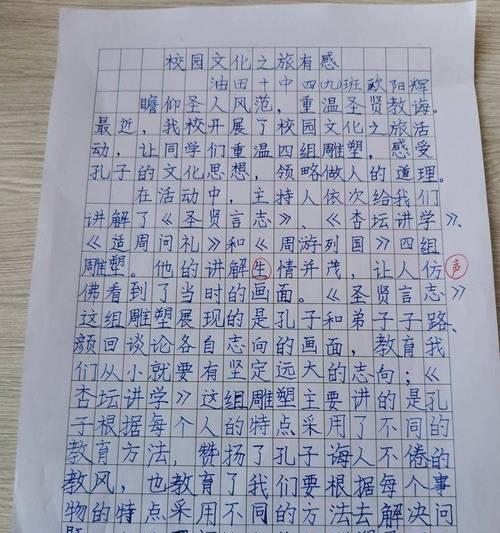 校园文化之旅有感
油田十中四(九)班欧阳辉
瞻仰圣人风范，重温圣贤教诲。
最近，我校开展了校园文化之旅活
动，让同学们重温四组雕塑，感受
孔子的文化思想，领略做人的道理。
在活动中，主持人依次给我们
讲解了《圣贤言志》、《杏坛讲学》、
《适周问礼》和《周游列国》四组
雕塑。他的讲解生情并茂，让人仿 声
佛看到了当时的画面。《圣贤言志》
这组雕塑展现的是孔子和弟子子路、
颜回谈论各自志向的画面，教育我
们从小就要有坚定远大的志向；《
杏坛讲学》这组雕塑主要讲的是孔
子根据每个人的特点采用了不同的
教育方法，赞扬了孔子诲人不倦的
教风，也教育了我们要根据每个事
物的特点采用不同的方法去解决问